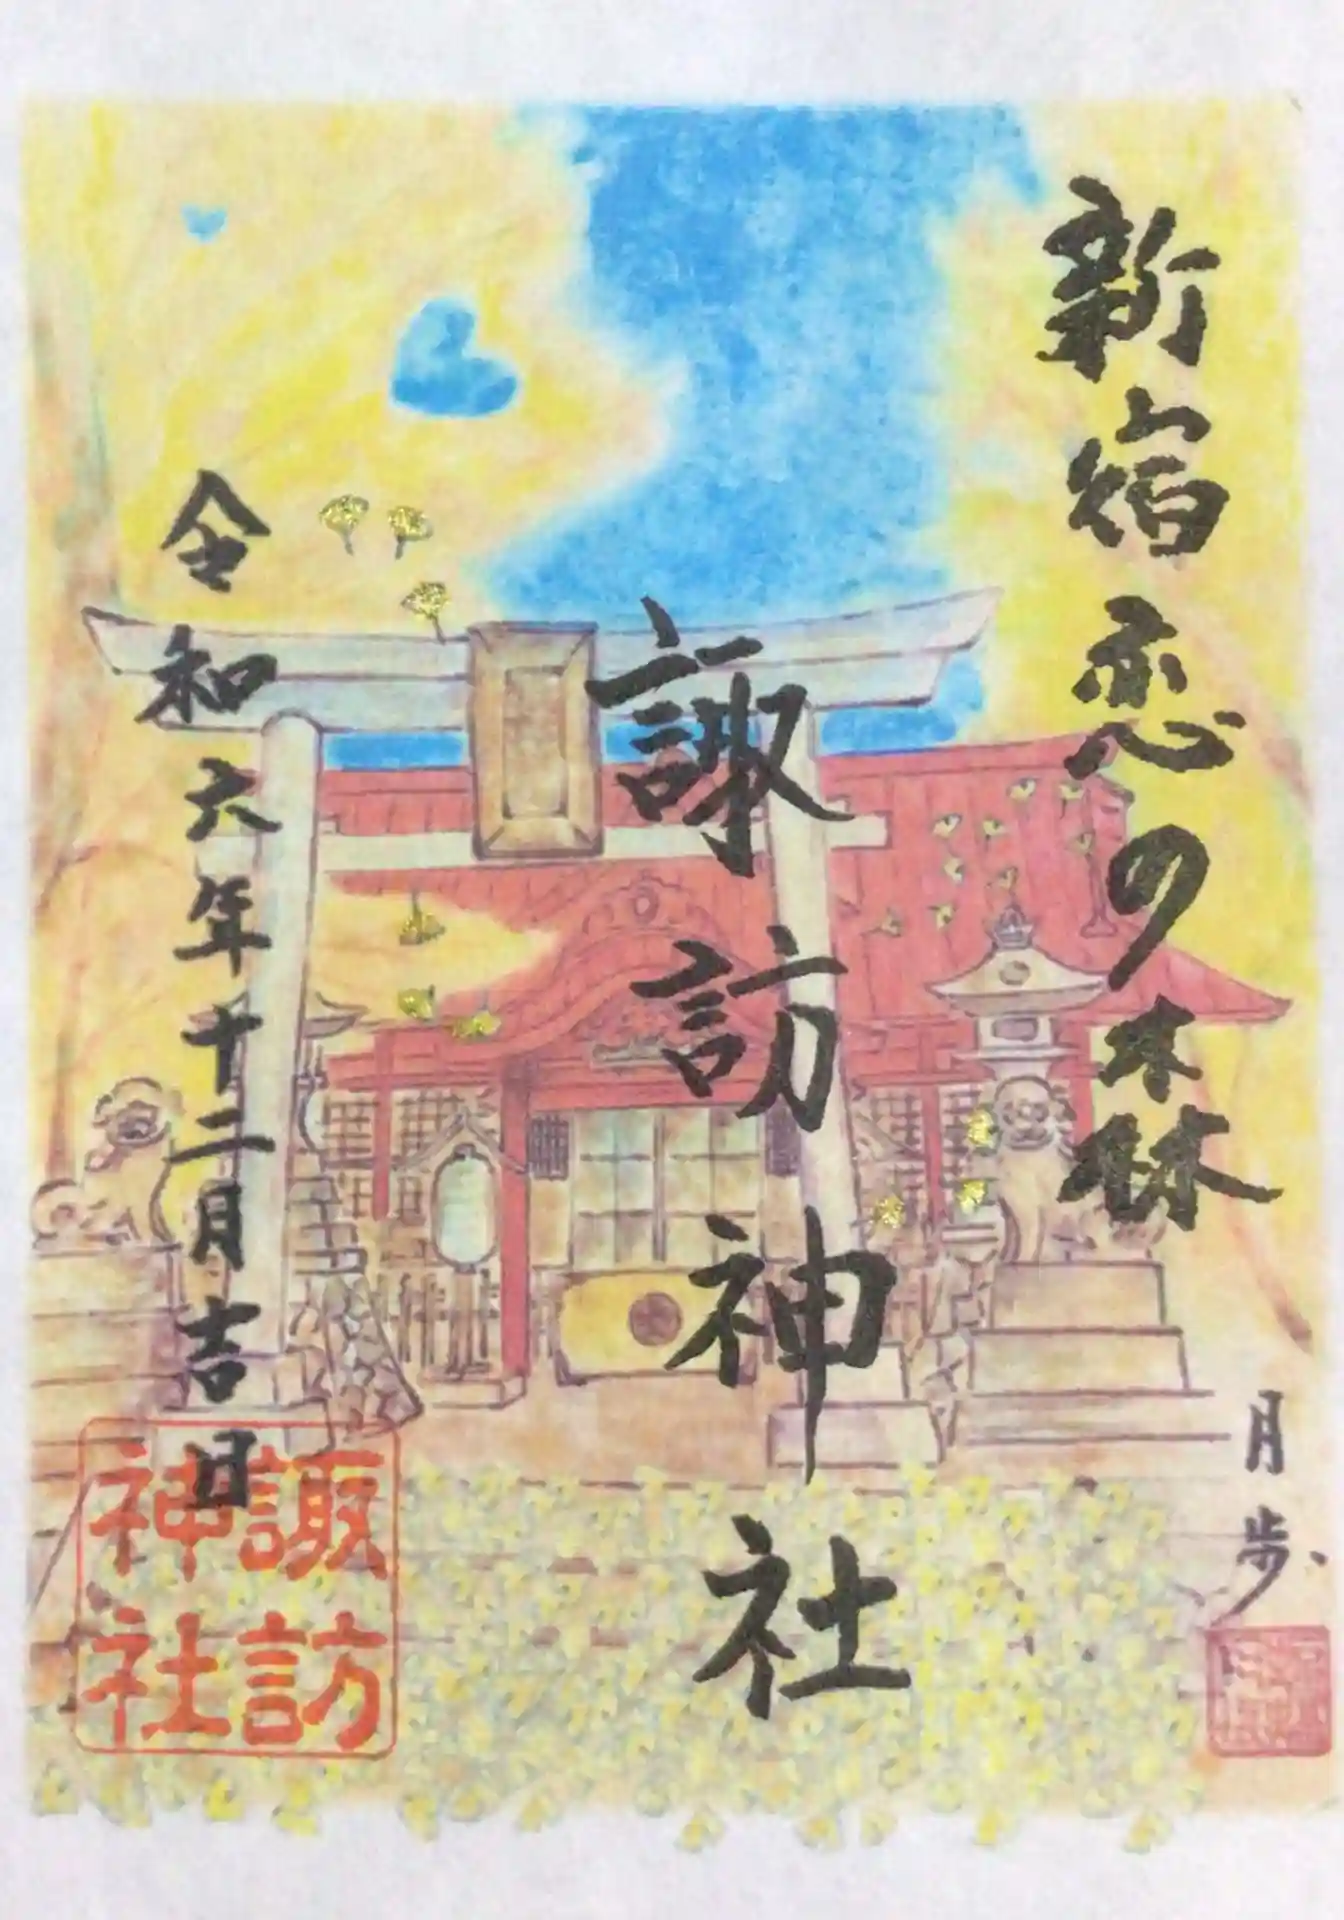 新宿恋の森
諏訪神社
令和六年十二月吉日
月歩
諏訪
神社